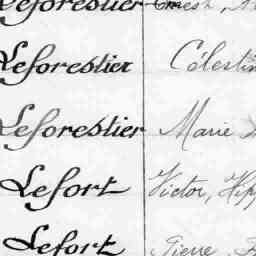 Leforestier Ernest,
Leforestier Célestin
Leforestier Marie
Lefort Victor, Hip
Lefort Pierre,